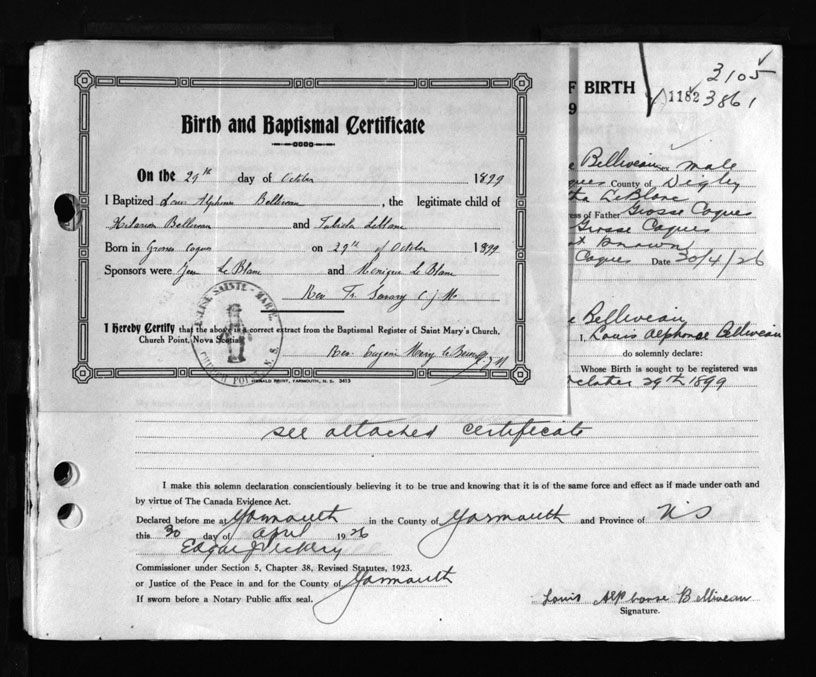 Birth and Baptismal Certificate
On the 29th day of October 1899
I Baptized Louis Alphonse Belliveau, the legitimate child of
Hilarion Belliveau and LeBlanc
Born in Grosses Coques on 29th of October 1899
Sponsors were Jean Le Blanc and Monique Le Blanc
Rev Fr.
I Hereby Certify that the above is a correct extract from the Baptismal Register of Saint Mary's Church,
Church Point, Nova Scotia
Rev. Eugenie Mary
EGLISE SAINTE-MARIE
CHURCH POINT N. S.
YARMOUTH, N. S. 3413
F BIRTH
9
3105
1182 3861
e Belliveau male
ques County of Digby
tha LeBlanc
ess of Father Grosse Coques
Grosse Coques
ot Known
Coques Date 30/4/26
e Belliveau
I, Louis Alphonse Belliveau
do solemnly declare:
Whose Birth is sought to be registered was
October 29th 1899
see attached certificate
I make this solemn declaration conscientiously believing it to be true and knowing that it is of the same force and effect as if made under oath and
by virtue of The Canada Evidence Act.
Declared before me at Yarmouth in the County of Yarmouth and Province of NS
this 30 day of April 1926
Edgar J Vickery
Commissioner under Section 5, Chapter 38, Revised Statutes, 1923.
or Justice of the Peace in and for the County of Yarmouth
If sworn before a Notary Public affix seal.
Louis Alphonse Belliveau
Signature.